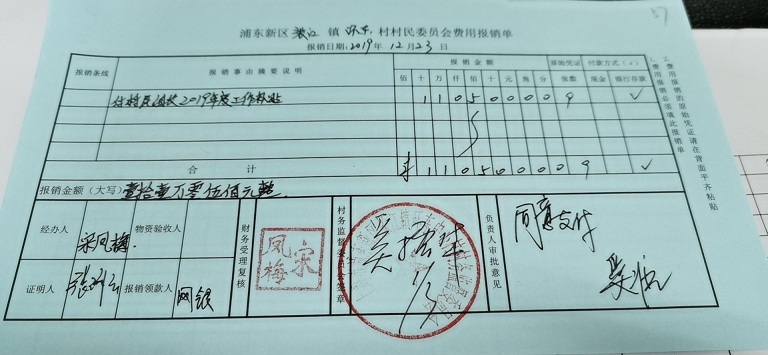 57
浦东新区 张江 镇 环东 村村民委员会费用报销单
报销日期:2019年12月23日
报销条线 报销事由摘要说明 报销金额 原始凭证 付款方式(√)
佰 十 万 仟 佰 十 元 角 分 张数 现金 银行存款
付村民组长2019年度工作补贴 1 1 0 5 0 0 0 0 9 √
合计 ¥ 1 1 0 5 0 0 0 0 9 √
报销金额(大写) 壹拾壹万零伍佰元整
经办人 宋凤梅 物资验收人
证明人 报销领款人 网银
财务受理复核
宋凤梅
村务监督委员会签章
1/3
负责人审批意见
同意支付
2、费用报销的原始凭证请在背面平齐粘贴
1、费用报销必须填此报销单